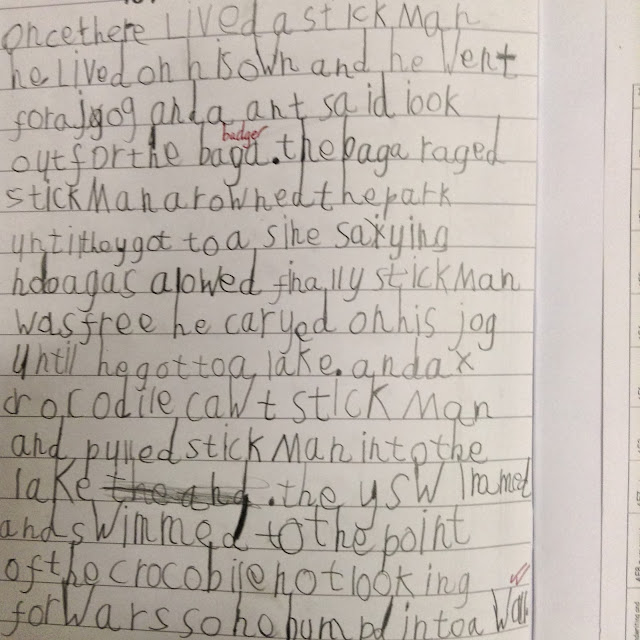 oncethere Lived a stick Man
he Lived on hisown and he Went
fora jog anda ant said look
badger
outforthe baga. the baga raged
stickManarownedthepark
untiltheygot to a sine saxying
nobagas alowed finally stickMan
wasfree he caryed onhis jog
until hegottoa lake. anda x
crocodile cawt stickMan
and pulled stickMan intothe
lake the and . they swimmed
andswimmed to thepoint
ofthecrocobile notlooking
forwarssoho bumpdintoa Wall